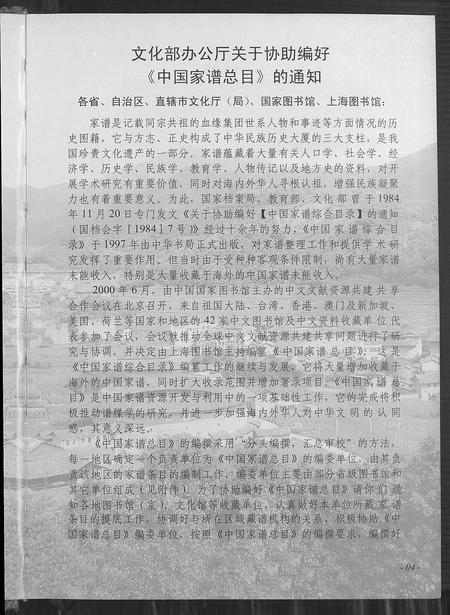 文化部办公厅关于协助编好
《中国家谱总目》的通知
各省、自治区、直辖市文化厅（局）、国家图书馆、上海图书馆：
家谱是记载同宗共祖的血缘集团世系人物和事迹等方面情况的历
史图籍，它与方志、正史构成了中华民族历史大厦的三大支柱，是我
国珍贵文化遗产的一部分。家谱蕴藏着大量有关人口学、社会学、经
济学、历史学、民族学、教育学、人物传记以及地方史的资料，对开
展学术研究有重要价值，同时对海内外华人寻根认祖，增强民族凝聚
力也有着重要意义。为此，国家档案局、教育部、文化部曾于1984
年11月20日专门发文《关于协助编好【中国家谱综合目录】的通知
（国档会字［1984］7号）》经过十余年的努力，《中国家谱综合目
录》于1997年由中华书局正式出版，对家谱整理工作和提供学术研
究发挥了重要作用。但当时由于受种种客观条件限制，尚有大量家谱
未能收入，特别是大量收藏于海外的中国家谱未能收入。
2000年6月，由中国国家图书馆主办的中文文献资源共建共享
合作会议在北京召开，来自祖国大陆、台湾、香港、澳门及新加坡、
美国、荷兰等国家和地区的42家中文图书馆及中文资料收藏单位代
表参加了会议，会议就推动全球中文文献资源共建共享问题进行了研
究与协调，并决定由上海图书馆主持编纂《中国家谱总目》，这是
《中国家谱综合目录》编纂工作的继续与发展，它将大量增加收藏于
海外的中国家谱，同时扩大收录范围并增加著录项目。《中国家谱总
目》是中国家谱资源开发与利用中的一项基础性工作，它的完成将积
极推动谱牒学的研究，并进一步加强海内外华人对中华文明的认同
感，其意义深远。
《中国家谱总目》的编撰采用“分头编撰，汇总审校”的方法，
每一地区确定一个负责单位为《中国家谱总目》的编委单位，由其负
责该地区的家谱条目的编制工作，编委单位主要由部分省级图书馆和
其它单位组成（见附件）。为了协助编好《中国家谱总目》请你们通
知各地图书馆（室）、文化馆等收藏单位，认真做好本单位所藏家谱
条目的摸底工作，协调好与所在区域藏谱机构的关系，积极协助《中
国家谱总目》编委单位，按照《中国家谱总目》的编撰要求，编撰好
- 04 -